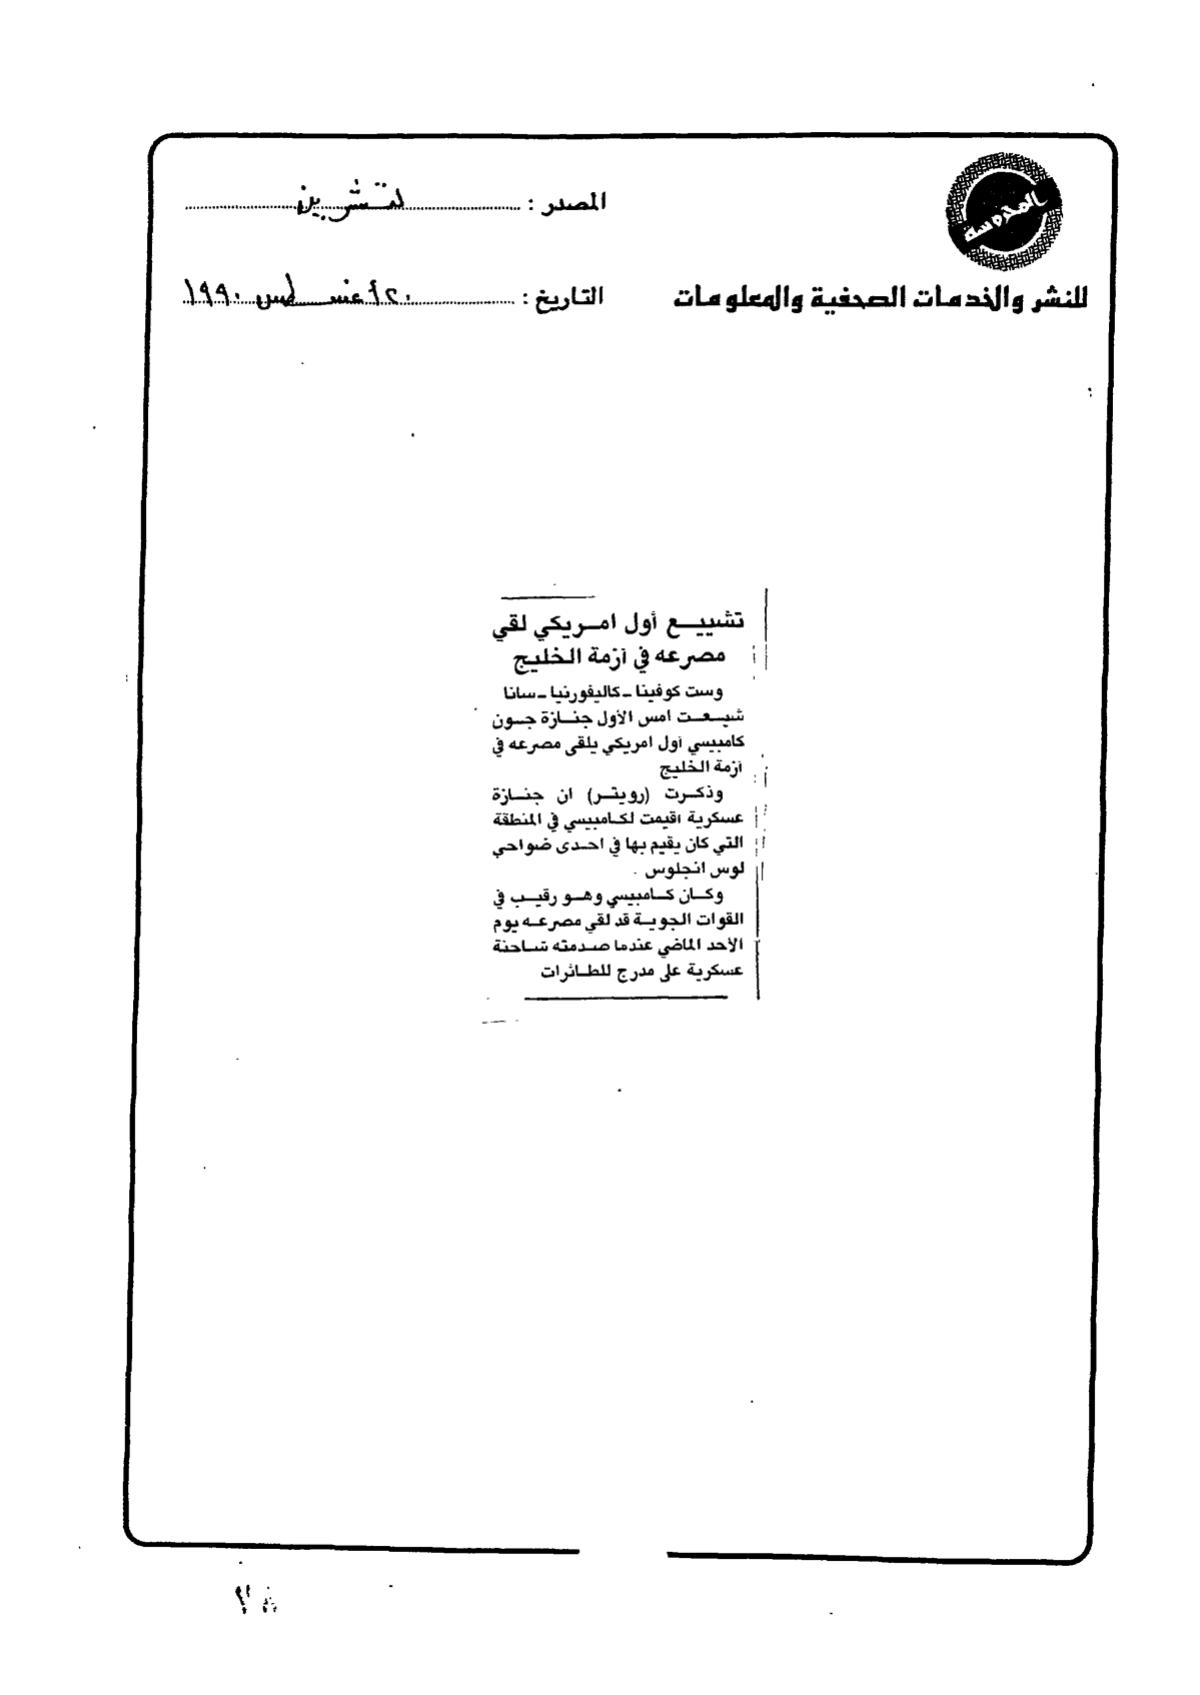 المحروسة
للنشر والخدمات الصحفية والمعلومات
المصدر : تشرين
التاريخ : ٢٠ أغسطس ١٩٩٠
تشييع أول امريكي لقي
مصرعه في أزمة الخليج
وست كوفينا ـ كاليفورنيا ـ سانا
شيعت امس الأول جنازة جون
كامبيسي أول امريكي يلقى مصرعه في
أزمة الخليج
وذكرت (رويتر) ان جنازة
عسكرية اقيمت لكامبيسي في المنطقة
التي كان يقيم بها في احدى ضواحي
لوس انجلوس .
وكان كامبيسي وهو رقيب في
القوات الجوية قد لقي مصرعه يوم
الأحد الماضي عندما صدمته شاحنة
عسكرية على مدرج للطائرات